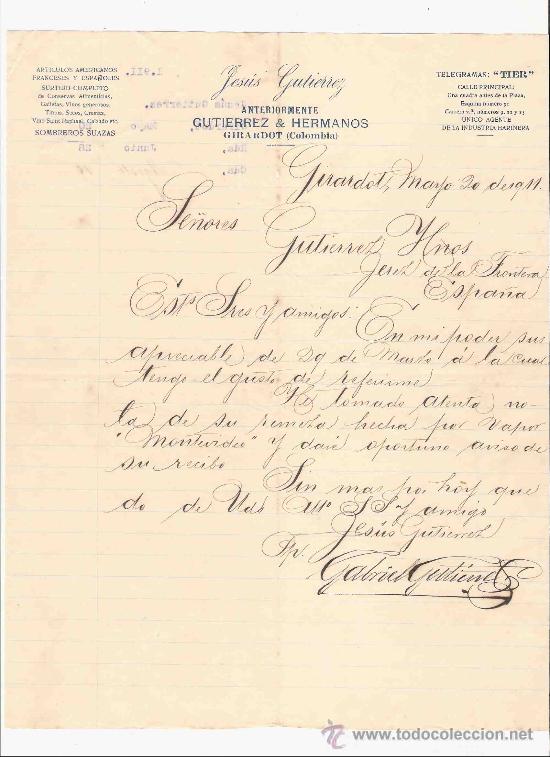 ARTICULOS AMERICANOS
FRANCESES Y ESPAÑOLES
SURTIDO COMPLETO
de Conservas Alimenticias,
Galletas, Vinos generosos,
Tintos, Secos, Cremas,
Vino Saint-Raphael, Calzado etc.
SOMBREROS SUAZAS
Jesús Gutierrez
ANTERIORMENTE
GUTIERREZ & HERMANOS
GIRARDOT (Colombia)
TELEGRAMAS: "TIER"
CALLE PRINCIPAL:
Una cuadra antes de la Plaza,
Esquina número 91
ÚNICO AGENTE
DE LA INDUSTRIA HARINERA
1.911.
Jesús Gutierres.
Junio 28
Girardot, Mayo 20 de 1911.
Señores
Gutiérrez Hnos
Jerez de la Frontera
España
Est°s Sres y amigos:
En mi poder sus
apreciable de 29 de Marzo a la cual
tengo el gusto de referirme
He tomado atenta no-
ta de su remesa hecha por Vapor
"Montevideo" y daré oportuno aviso de
su recibo
Sin mas por hoy que
do de Uds Atto S S y amigo
Jesús Gutierrez
Pp.
Gabriel Gutiérrez
www.todocoleccion.net